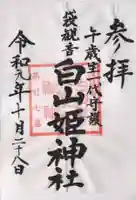 参拝
午歳生一代守護
萩観音
白山姫神社
令和元年十月二十八日